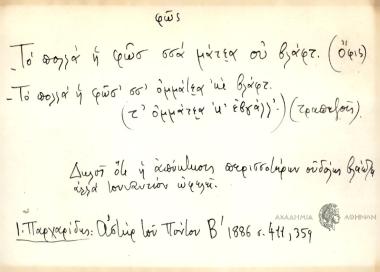 φῶς
- Τό πολλά ἡ φῶσ σσά μάτεα οὐ βλάφτ. (Ὄφις)
- Τό πολλά ἡ φῶσ' σσ' ὀμμάτεα 'κὶ βλάφτ.
(τ' ὀμμάτεα 'κ' ἐβγάλλ'.) (Τραπεζοῦς)
Δηλοῖ ὅτι ἡ ἀπόκτησις περισσοτέρων οὐδόλως βλάπτει
ἀλλά τοὐναντίον ὠφελεῖ.
Ι. Παρχαρίδης: Ἀστήρ τοῦ Πόντου Β' 1886 σ. 411, 359
ΑΚΑΔΗΜΙΑ ΑΘΗΝΩΝ